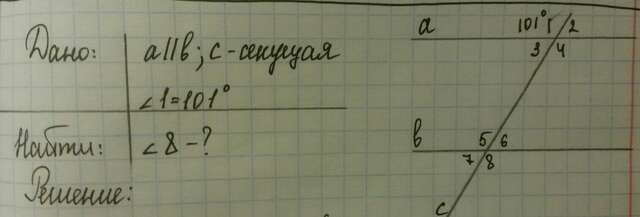 Дано:
a||b; c - секущая
∠1=101°
Найти:
∠8 - ?
Решение:
a
101° 1 2
3 4
в
5 6
7 8
c